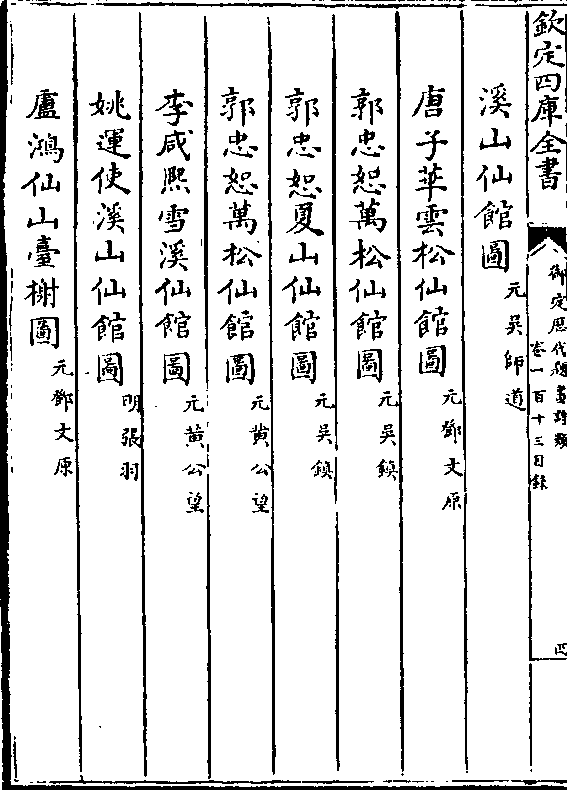 欽定四庫全書
御定歷代題畫詩類
卷一百十三目錄
四
溪山仙館圖 元吳師道
唐子華雲松仙館圖 元鄧文原
郭忠恕萬松仙館圖 元吳鎮
郭忠恕夏山仙館圖 元吳鎮
郭忠恕萬松仙館圖 元黄公望
李咸熙雪溪仙館圖 元黄公望
姚運使溪山仙館圖 明張羽
盧鴻仙山臺榭圖 元鄧文原